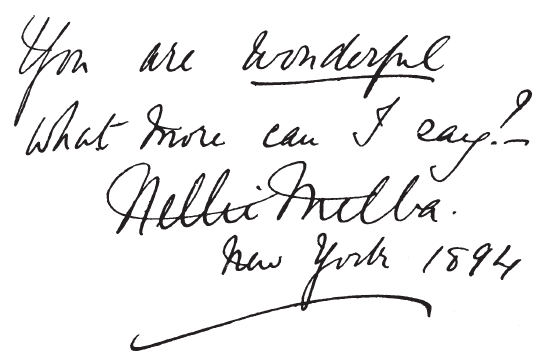 You are wonderful
what more can I say?—
Nellie Melba.
New York 1894